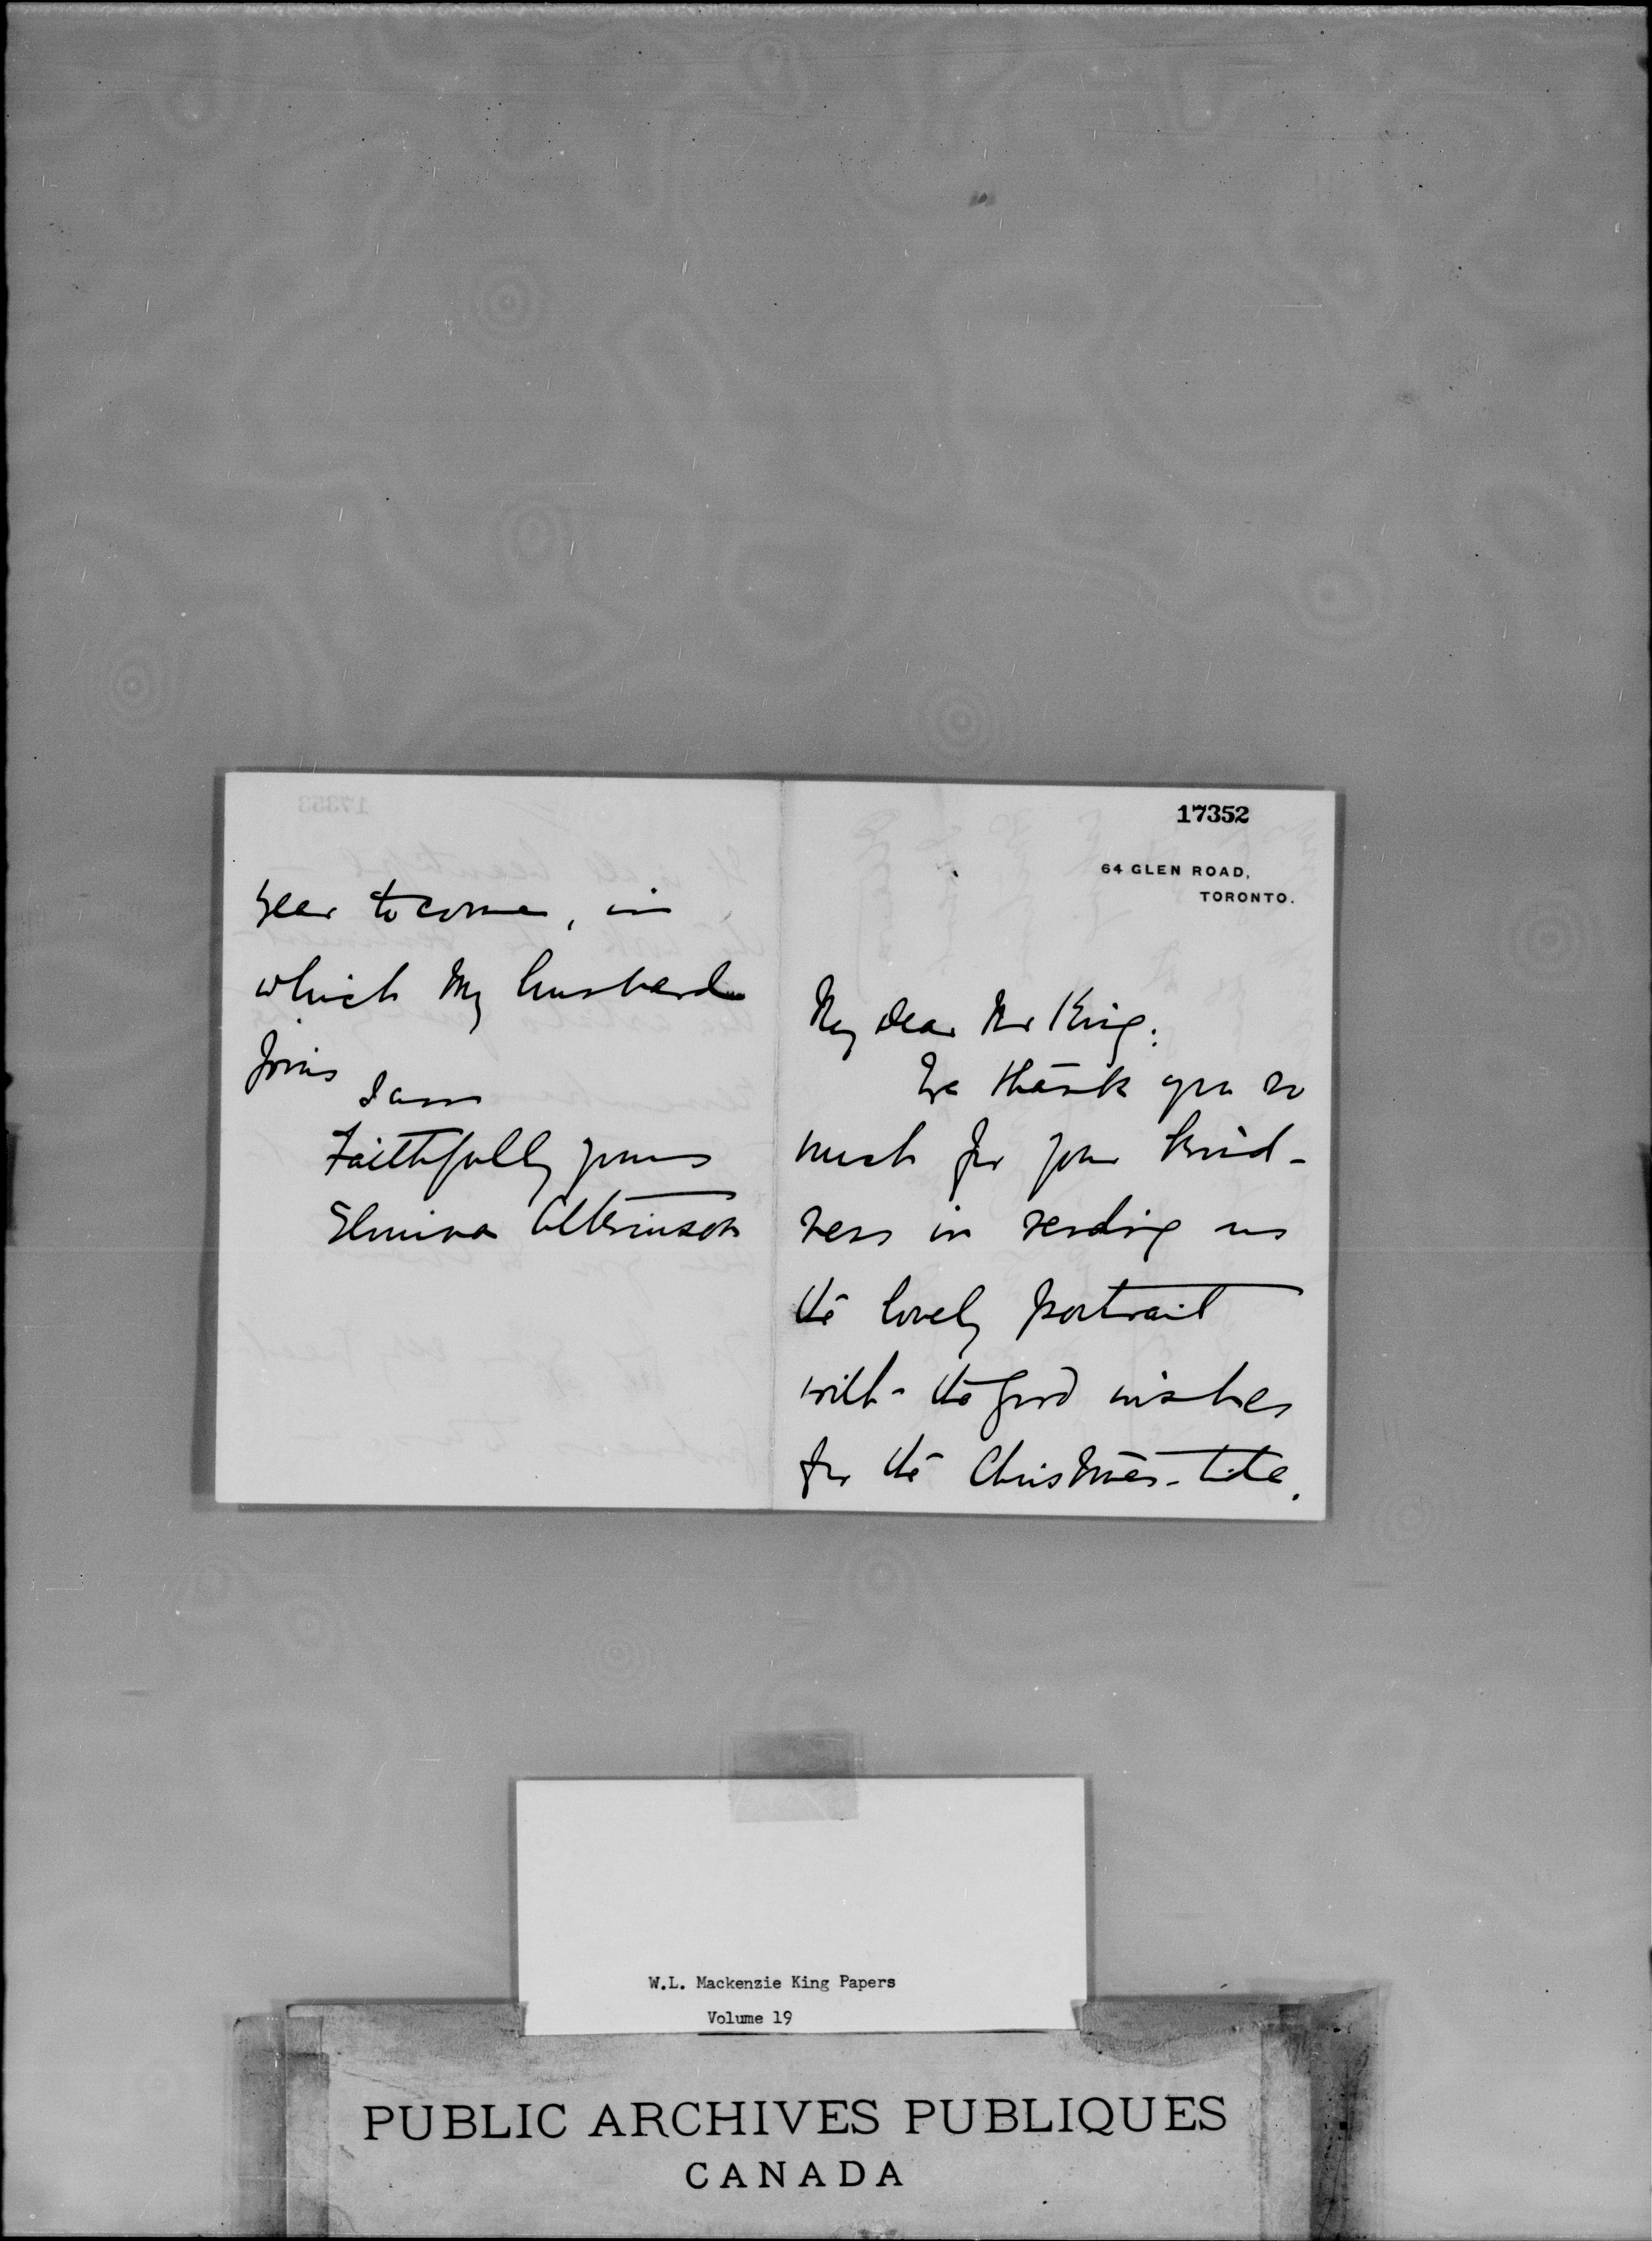 17352
64 GLEN ROAD,
TORONTO.
My dear Mr King:
We thank you so
much for your kind-
ness in sending us
the lovely portrait
with the good wishes
for the Christmas-tide.
year to come, in
which my husband
joins
I am
Faithfully yours
Elmina Atkinson
W.L. Mackenzie King Papers
Volume 19
PUBLIC ARCHIVES PUBLIQUES
CANADA